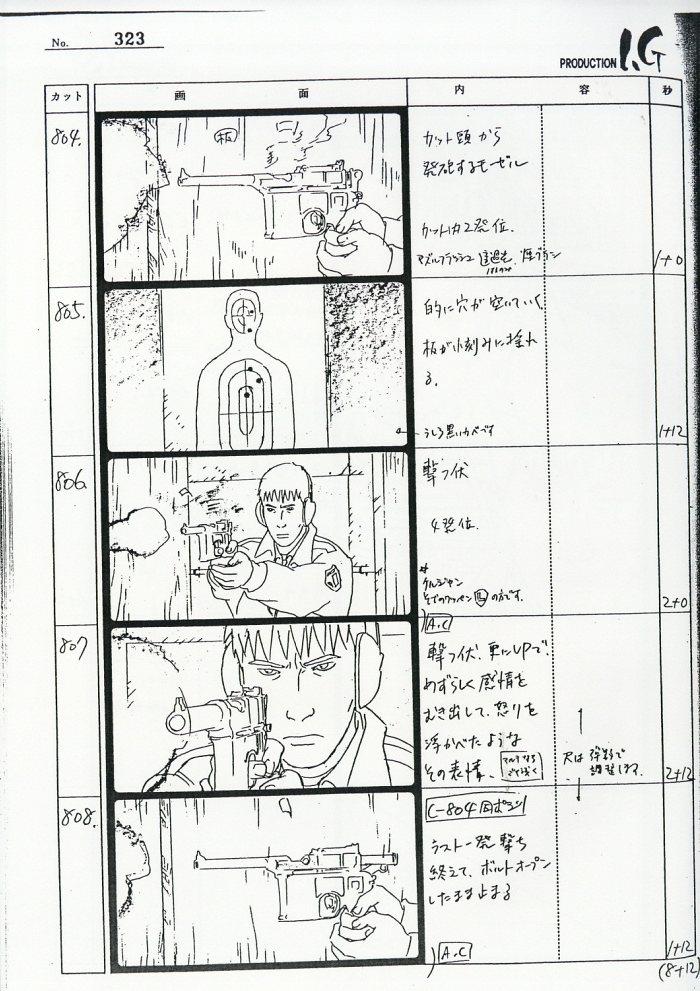 No. 323
PRODUCTION I.G
カット
画 面
内 容
秒
804.
板
カット頭から
発砲するモーゼル
カット内2発位.
1+0
805.
的に穴が空いていく
板が小刻みに揺れ
る.
うしろ黒いカベです
1+12
806.
撃つ伏
4発位.
の方です.
2+0
A.C
807
撃つ伏、更にUPで.
めずらしく感情を
むき出して、怒りを
浮かべたような
その表情、
尺は
調整します.
2+12
808.
C-804同ポジ
ラスト一発撃ち
終えて、ボルトオープン
したまま止まる
A.C
1+12
(8+12)